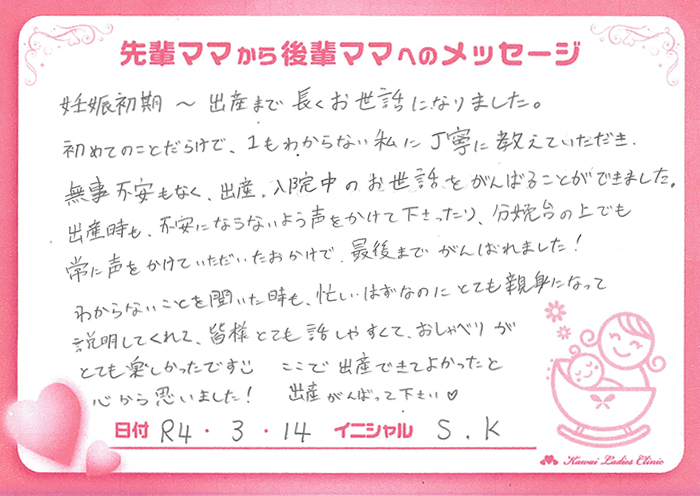 先輩ママから後輩ママへのメッセージ
妊娠初期 〜 出産まで 長くお世話になりました。
初めてのことだらけで、1もわからない私に丁寧に教えていただき、
無事不安もなく、出産、入院中のお世話をがんばることができました。
出産時も、不安にならないよう声をかけて下さったり、分娩台の上でも
常に声をかけていただいたおかげで、最後までがんばれました!
わからないことを聞いた時も、忙しいはずなのにとても親身になって
説明してくれて、皆様とても話しやすくて、おしゃべりが
とても楽しかったです ここで出産できてよかったと
心から思いました! 出産がんばって下さい♡
日付 R4・3・14 イニシャル S.K
Kawai Ladies Clinic